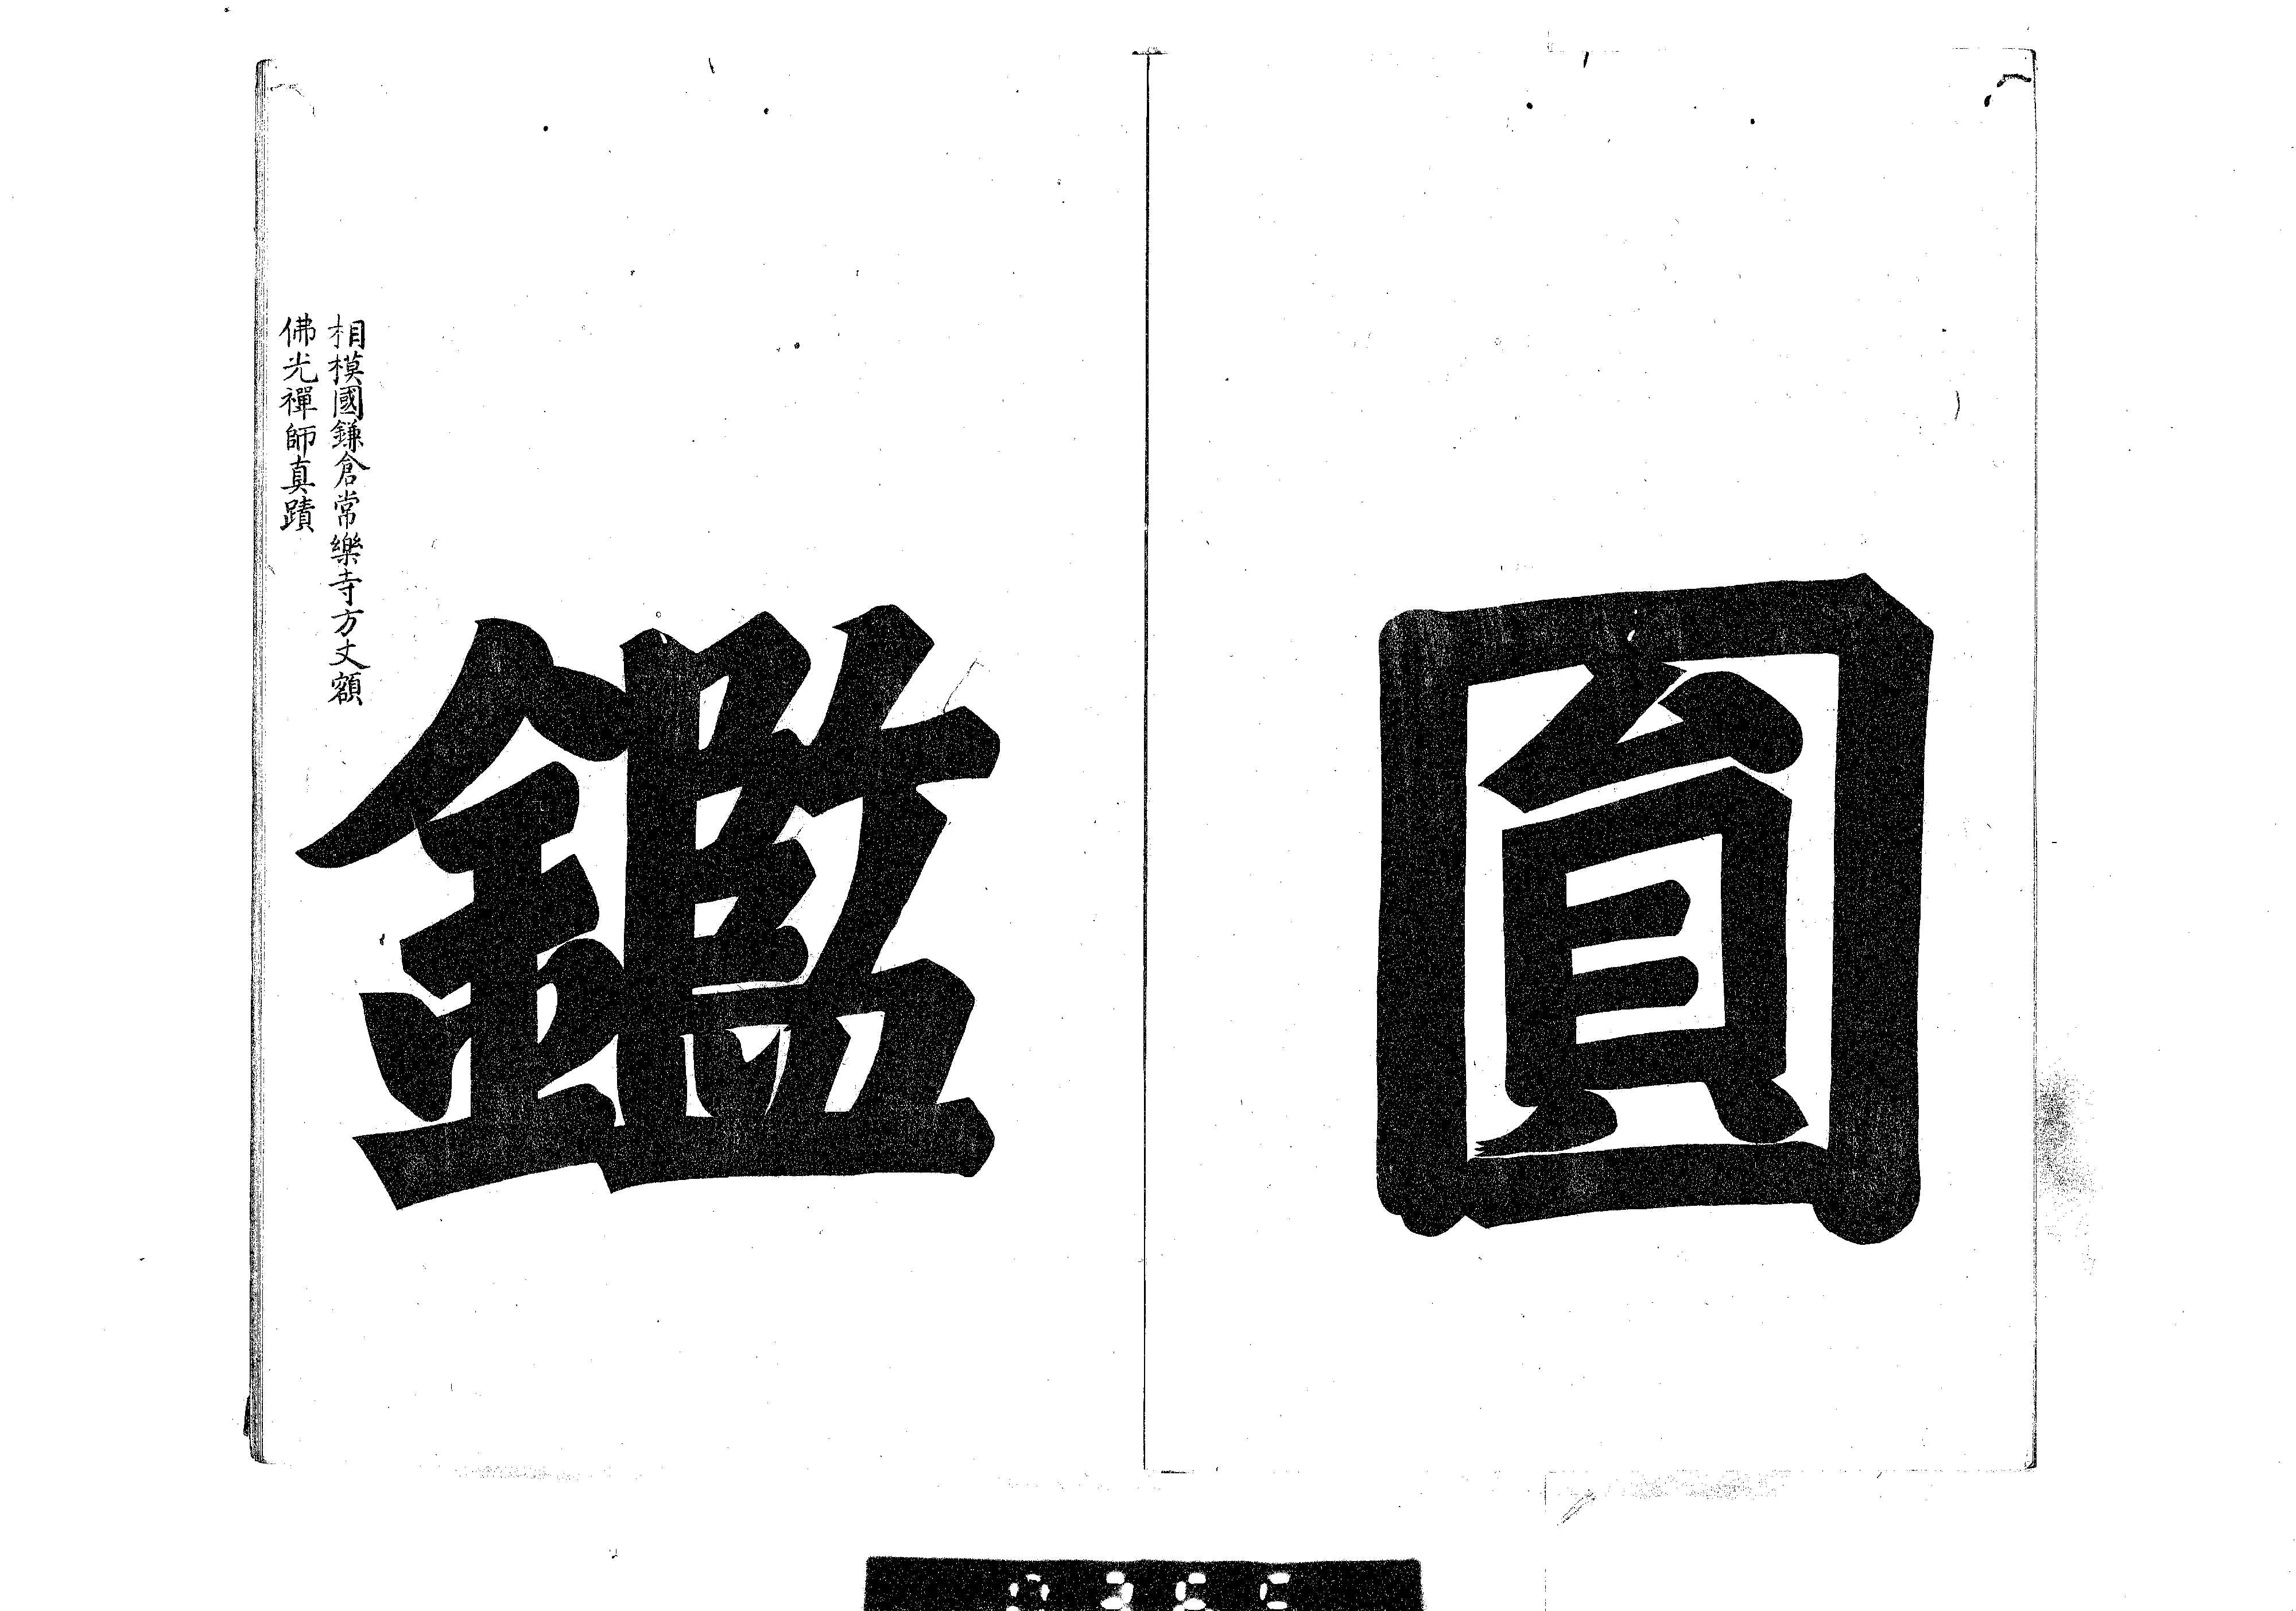 圓
鑑
相模國鎌倉常樂寺方丈額
佛光禪師真蹟